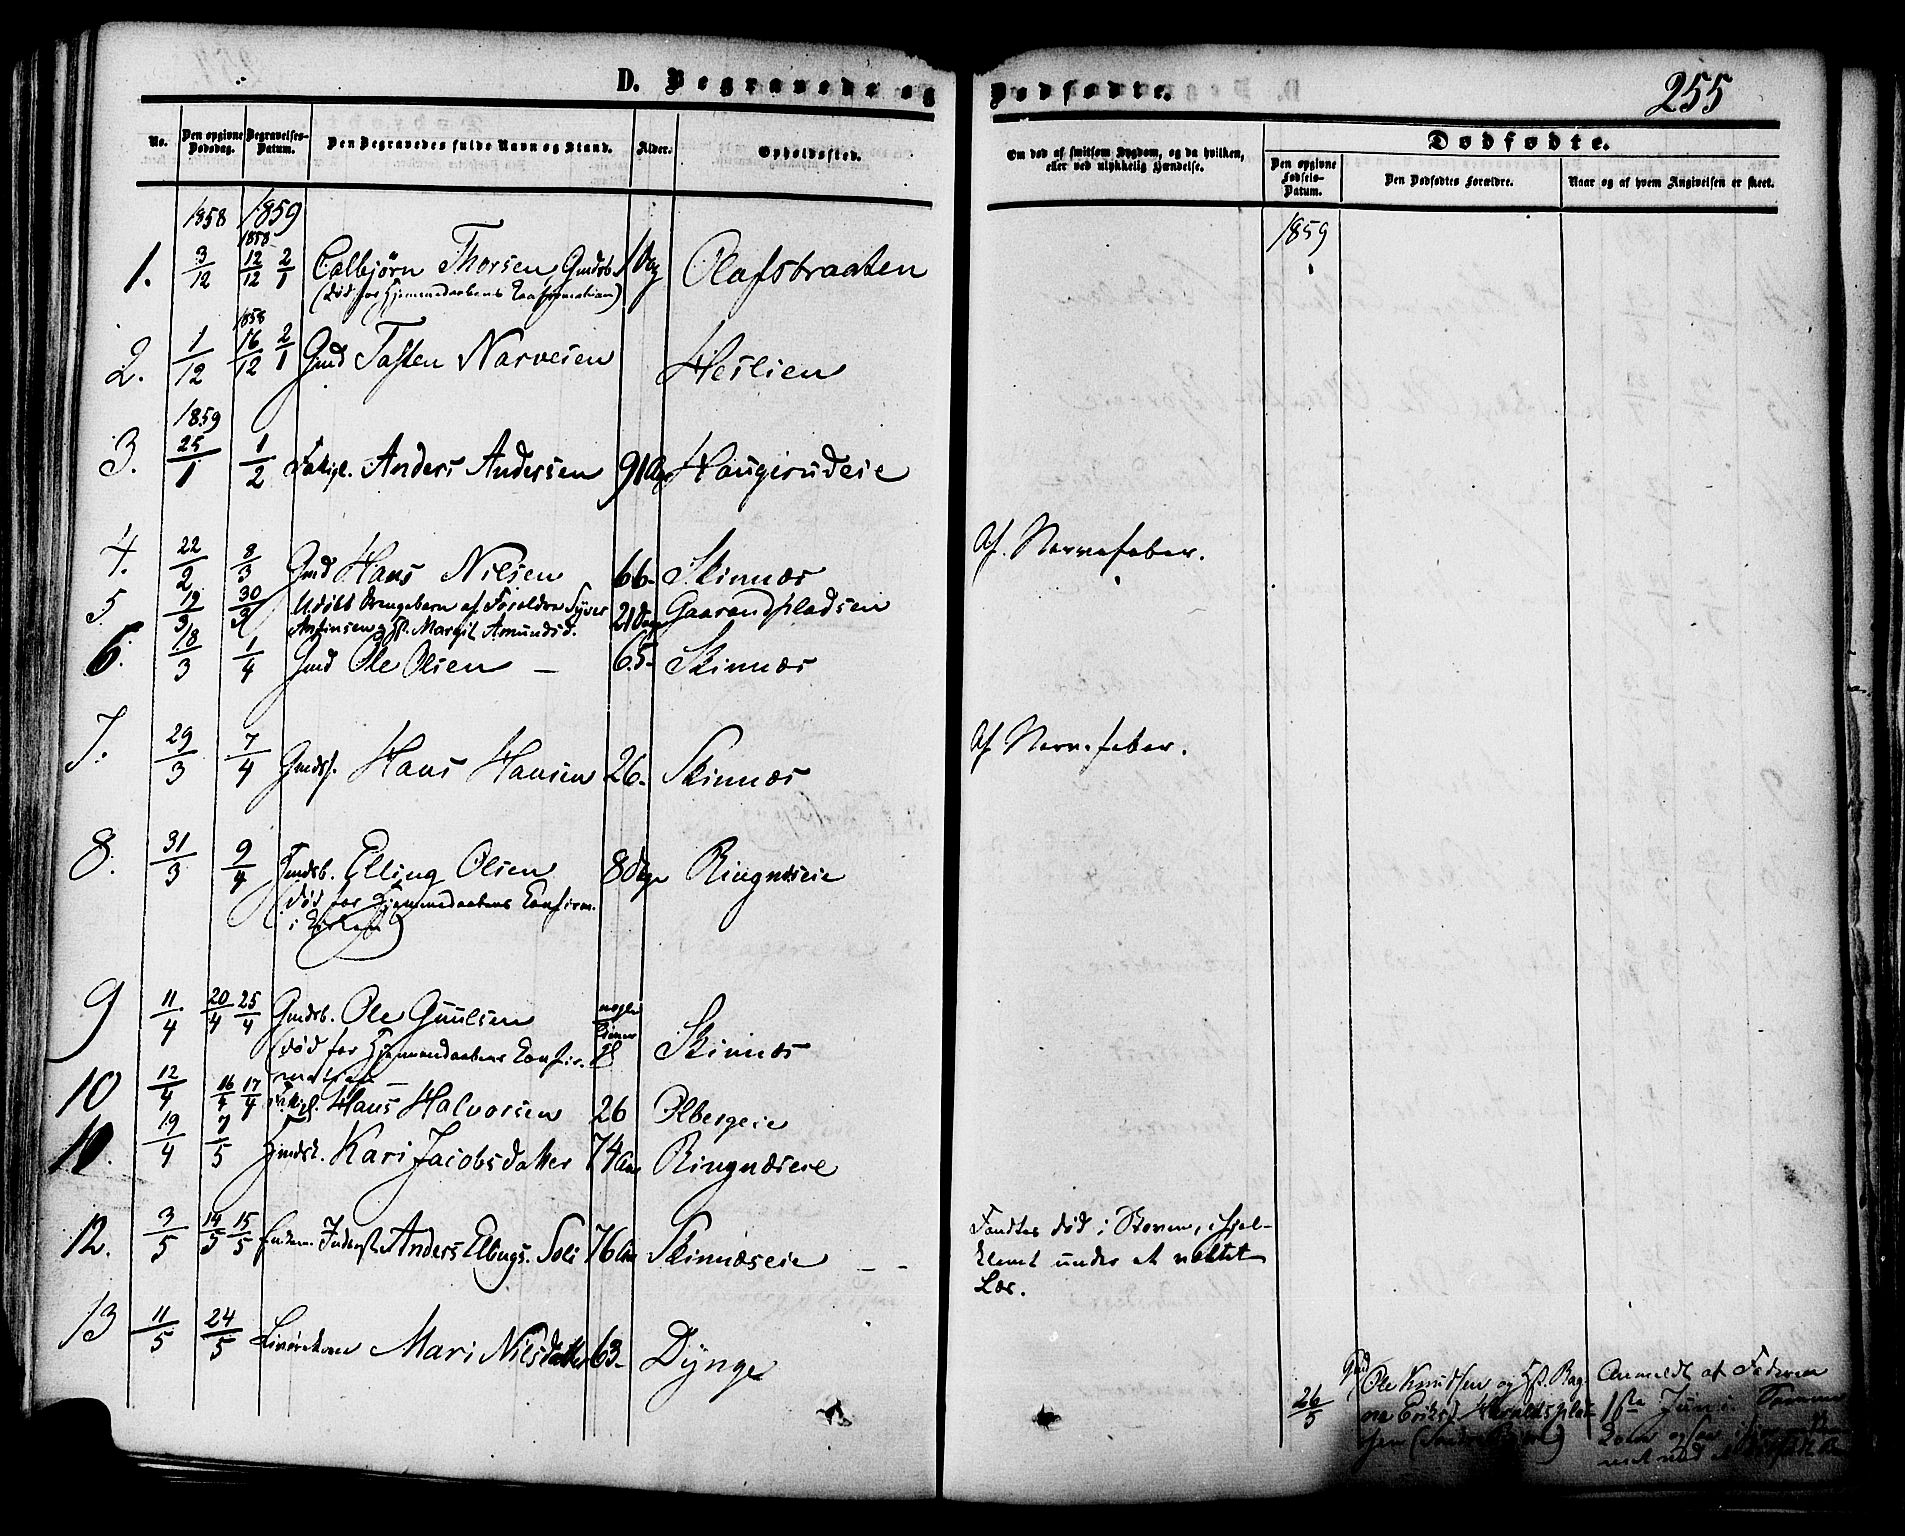 D. Begravede og Dødfødte.
255
No.
Den opgivne Dødsdag.
Begravelses-Datum.
Den Begravedes fulde Navn og Stand.
Alder.
Opholdssted.
Om død af smitsom Sygdom, og da hvilken,
eller ved ulykkelig Hændelse.
Dødfødte.
Den opgivne Fødsels-Datum.
Den Dødfødtes Forældre.
Naar og af hvem Angivelsen er skeet.
1858 1859
1859
1858
1. 3/12 12/12 2/1 Colbjørn Thorsen, Gmdsb. 1 Dag Olafsbraaten
(død før Hjemmedaabens Confirmation)
1858
2. 1/12 16/12 2/1 Gmd Tosten Narvesen Heslien
1859
3. 25/1 1/2 Fattigl. Anders Andersen 91 Aar Haugerudeie
4. 22/2 8/3 Gmd Hans Nilsen 66 - Skinnæs Af Nervefeber.
5. 19/3 30/3 Udøbt Drengebarn af Forældre Syver 21 Dage Gaarandpladsen
Antinsen og H. Margit Amundsd.
6. 18/3 1/4 Gmd Ole Olsen — 65 - Skinnæs
7. 29/3 7/4 Gmds. Hans Hansen 26 - Skinnæs Af Nervefeber.
8. 31/3 9/4 Indsb. Elling Olsen 8 Dage Ringnæseie
(død før Hjemmedaabens Confirm.
i Kirken)
9 11/4 20/4 25/4 Gmdsb. Ole Gunlsen nogle Timer gl Skinnæs
(død før Hjemmedaabens Confir-
mation —
10 12/4 16/4 17/4 Fattigl. Hans Halvorsen 26 Olbergeie
11. 19/4 7/5 Hmdsk. Kari Jacobsdatter 74 Aar Ringnæseie
12. 3/5 14/5 15/5 Inderst Anders Elbrgs. Soli 76 Aar Skinnæseie - -
Fandtes død i Skoven, ihjel-
klemt under et væltet
Læs.
13 11/5 24/5 Livørekone Mari Nilsdatter 63 - Dynge
26/5
Gmd Ole Knudsen og H. Rag-
ne Eriksd. Haraldsplad-
sen
Anmeldt af Faderen
1ste Juni.